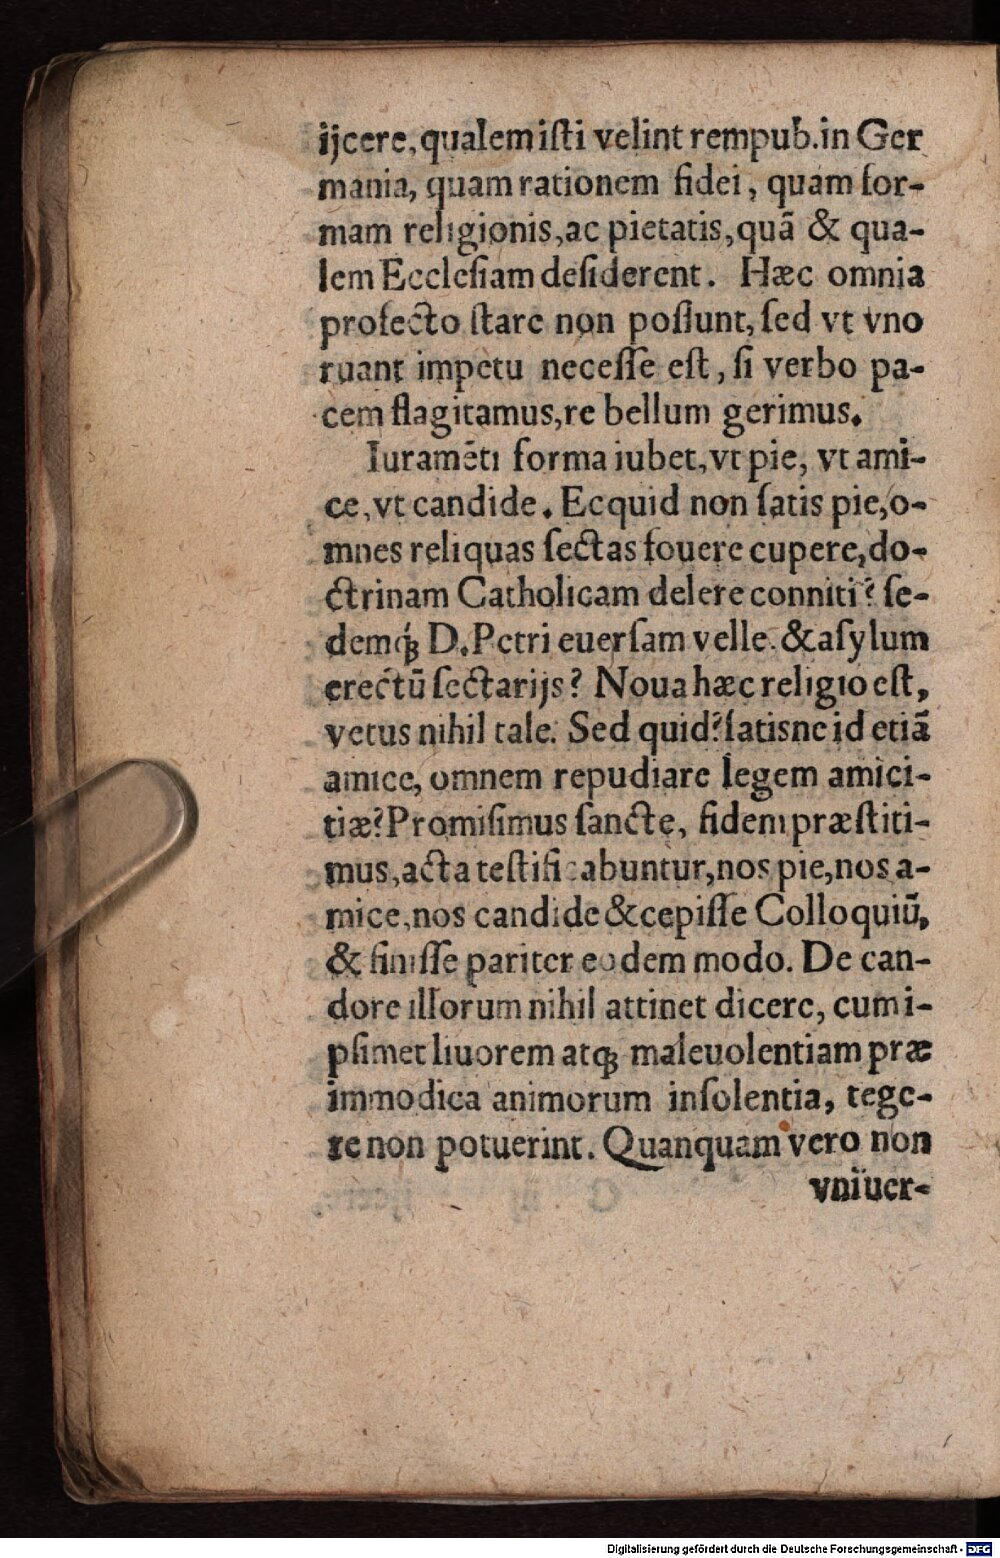 ijcere, qualem iſti velint rempub. in Ger
mania, quam rationem fidei, quam for-
mam religionis, ac pietatis, quã & qua-
lem Eccleſiam deſiderent. Hæc omnia
profecto ſtare non poſſunt, ſed vt vno
ruant impetu neceſſe eſt, ſi verbo pa-
cem flagitamus, re bellum gerimus.
Iuramẽti forma iubet, vt pie, vt ami-
ce, vt candide. Ecquid non ſatis pie, o-
mnes reliquas ſectas fouere cupere, do-
ctrinam Catholicam delere conniti? ſe-
demq́ꝫ D. Petri euerſam velle. & aſylum
erectũ ſectarijs? Noua hæc religio eſt,
vetus nihil tale. Sed quid? ſatisne id etiã
amice, omnem repudiare legem amici-
tiæ? Promiſimus ſancte, fidem præſtiti-
mus, acta teſtificabuntur, nos pie, nos a-
mice, nos candide & cepiſſe Colloquiũ,
& finiſſe pariter eodem modo. De can-
dore illorum nihil attinet dicere, cum i-
pſimet liuorem atqꝫ maleuolentiam præ
immodica animorum inſolentia, tege-
re non potuerint. Quanquam vero non
vniuer-
Digitalisierung gefördert durch die Deutsche Forschungsgemeinschaft - DFG